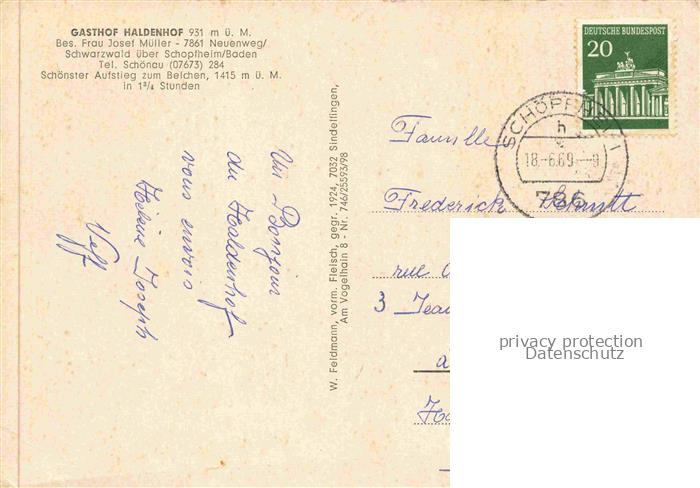 GASTHOF HALDENHOF 931 m ü. M.
Bes. Frau Josef Müller - 7861 Neuenweg/
Schwarzwald über Schopfheim/Baden
Tel. Schönau (07673) 284
Schönster Aufstieg zum Belchen, 1415 m ü. M.
in 1¾ Stunden
Un Bonjour
du Haldenhof
vous envois
Hélène Joseph
W. Feldmann, vorm. Fleisch, gegr. 1924, 7032 Sindelfingen,
Am Vogelhain 8 - Nr. 746/25593/98
DEUTSCHE BUNDESPOST
20
SCHOPFHEIM 1
h
18.-6.69.--9
786
Famille
Frederick Schmitt
rue
3 Jean
privacy protection
Datenschutz